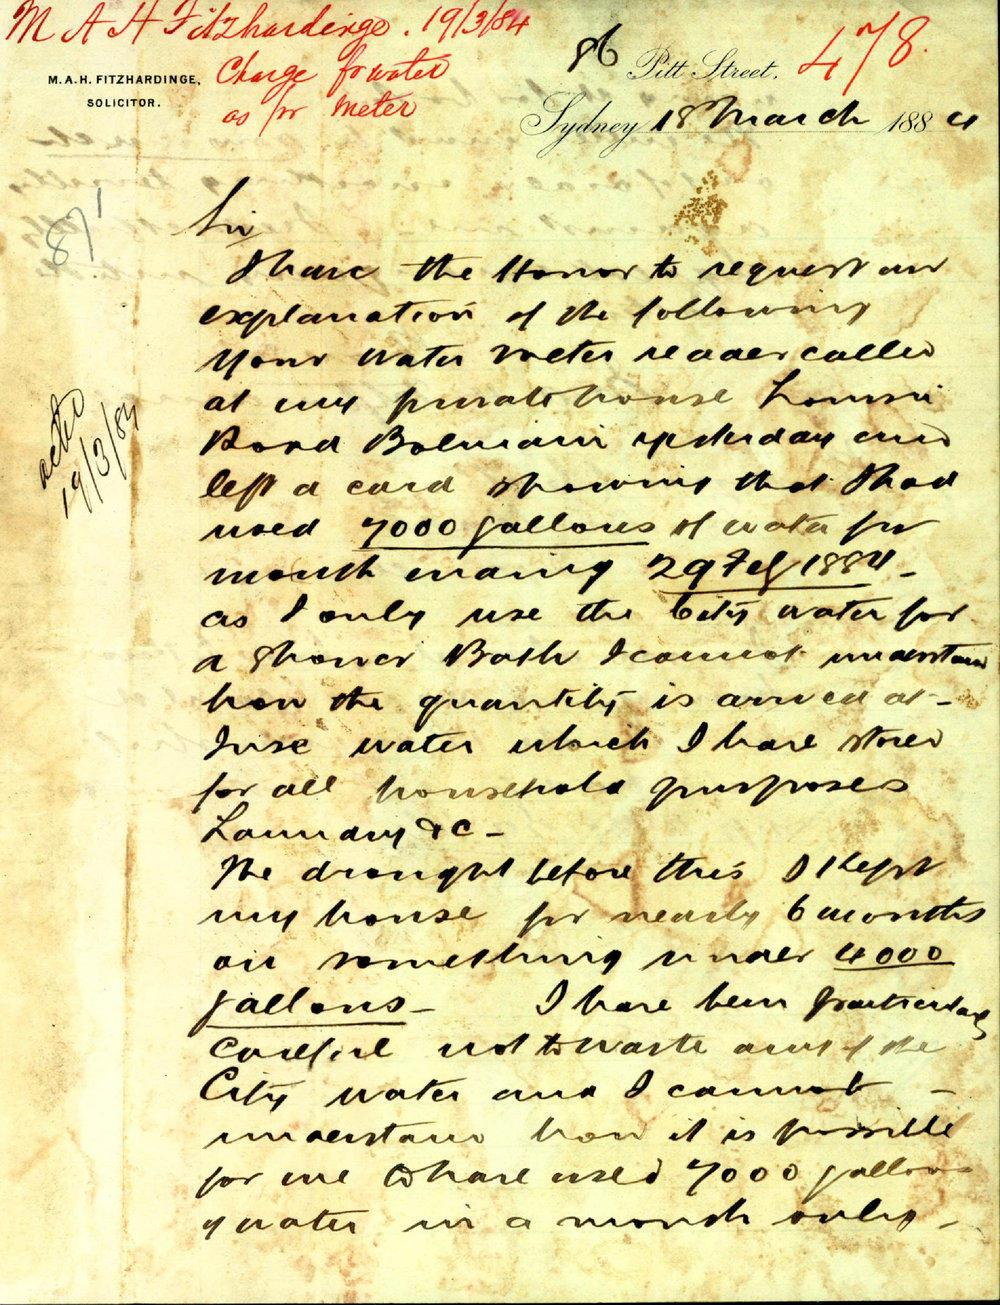 M A H Fitzhardinge. 19/3/84
Charge for water
as pr Meter
478.
M.A.H. FITZHARDINGE,
SOLICITOR.
86 Pitt Street.
Sydney 18 March 1884
87
acted
19/3/84
Sir
I have the Honor to request an
explanation of the following
Your water meter reader called
at my private house Louisa
Road Balmain yesterday and
left a card showing that I had
used 7000 gallons of water for
month ending 29 Feb 1884 -
as I only use the City water for
a Shower Bath I cannot understand
how the quantity is arrived at -
I use water which I have stored
for all household purposes
Laundry &c -
The drought before this I kept
my house for nearly 6 months
on something under 4000
gallons - I have been particularly
careful not to waste any of the
City water and I cannot -
understand how it is possible
for me to have used 7000 gallons
of water in a month only -